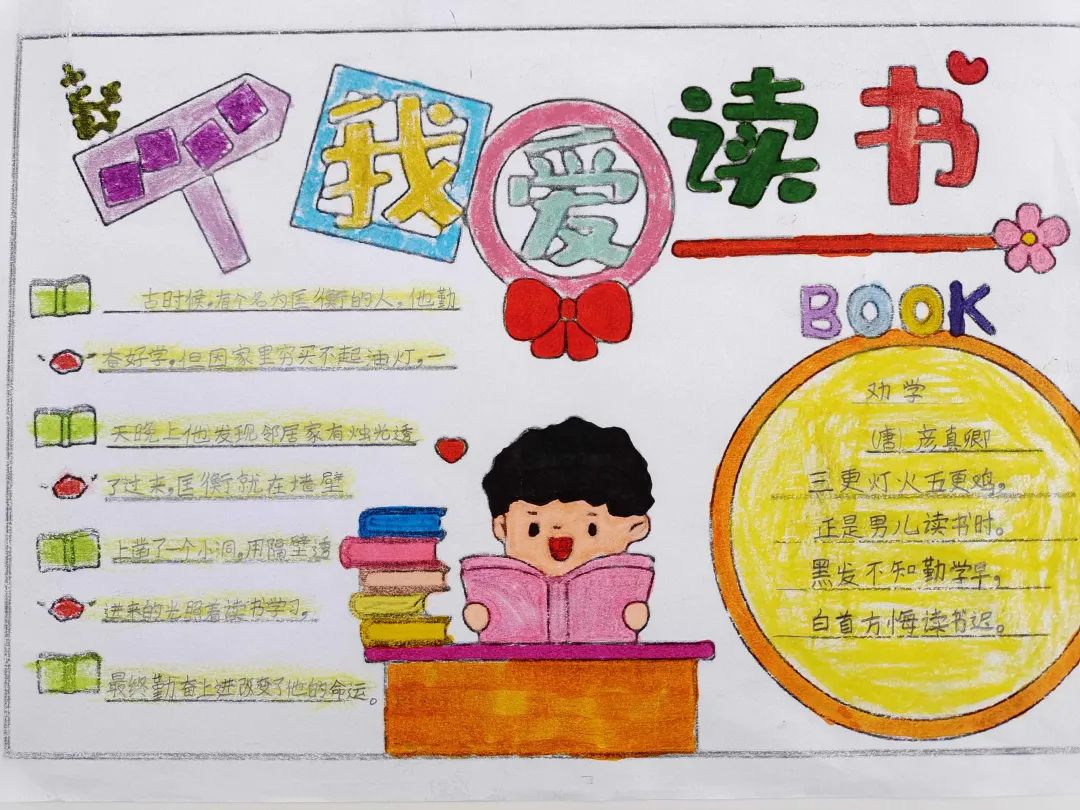 我爱读书
古时候，有个名为匡衡的人。他勤
奋好学，但因家里穷买不起油灯。一
天晚上他发现邻居家有烛光透
了过来，匡衡就在墙壁
上凿了一个小洞。用隔壁透
进来的光照着读书学习，
最终勤奋上进改变了他的命运。
BOOK
劝学
（唐）彦真卿
三更灯火五更鸡，
正是男儿读书时。
黑发不知勤学早，
白首方悔读书迟。